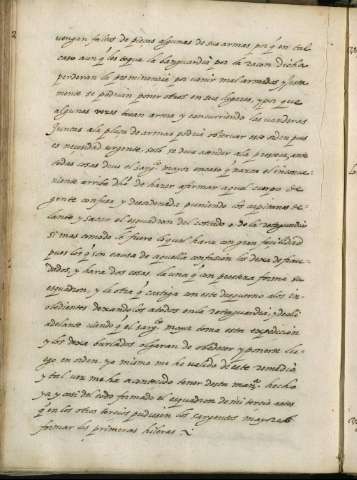 vengan faltos de pieças algunas de sus armas por q̃ en tal
caso aunq̃ les toque la banguardia por la raçon dicha
perderan la preminençia por venir mal armados y justa
mente se podrian poner otros en sus lugares, y por que
algunas vezes tocan arma y concurriendo las vanderas
Juntas a la plaça de armas podria observar esse orden pues
es necesidad urgente, solo se deve atender a la presteça, ante
todas cosas deve el sarg.to mayor
niente arriba dho de hazer afirmar aquel cuerpo de
gente confusa y desordenada poniendo los capitanes de
lante y sacar el esquadron del costado o de la retaguardia
si mas comodo le fuere lo qual hara con gran façilidad
pues los q̃ son causa de aquella confusion los dexa defrau
dados, y hara dos cosas la una q̃ con presteza forma su
esquadron, y la otra q̃ castiga con este desqueento a los in
obedientes dexando los atados en la retaguardia; y de alli
adelante viendo q̃ el sarg.to mayor toma esta expediçion
y los dexa burlados olgaran de obedeçer y ponerse lue
go en orden. yo mismo me he valido de este remedio
y tal vez me ha aconteçido tener desta man.ra hecho
ya y casi del todo formado el esquadron de mi terçio antes
q̃ en los otros terçios pudiessen los sargentos mayores
formar las primeras hileras